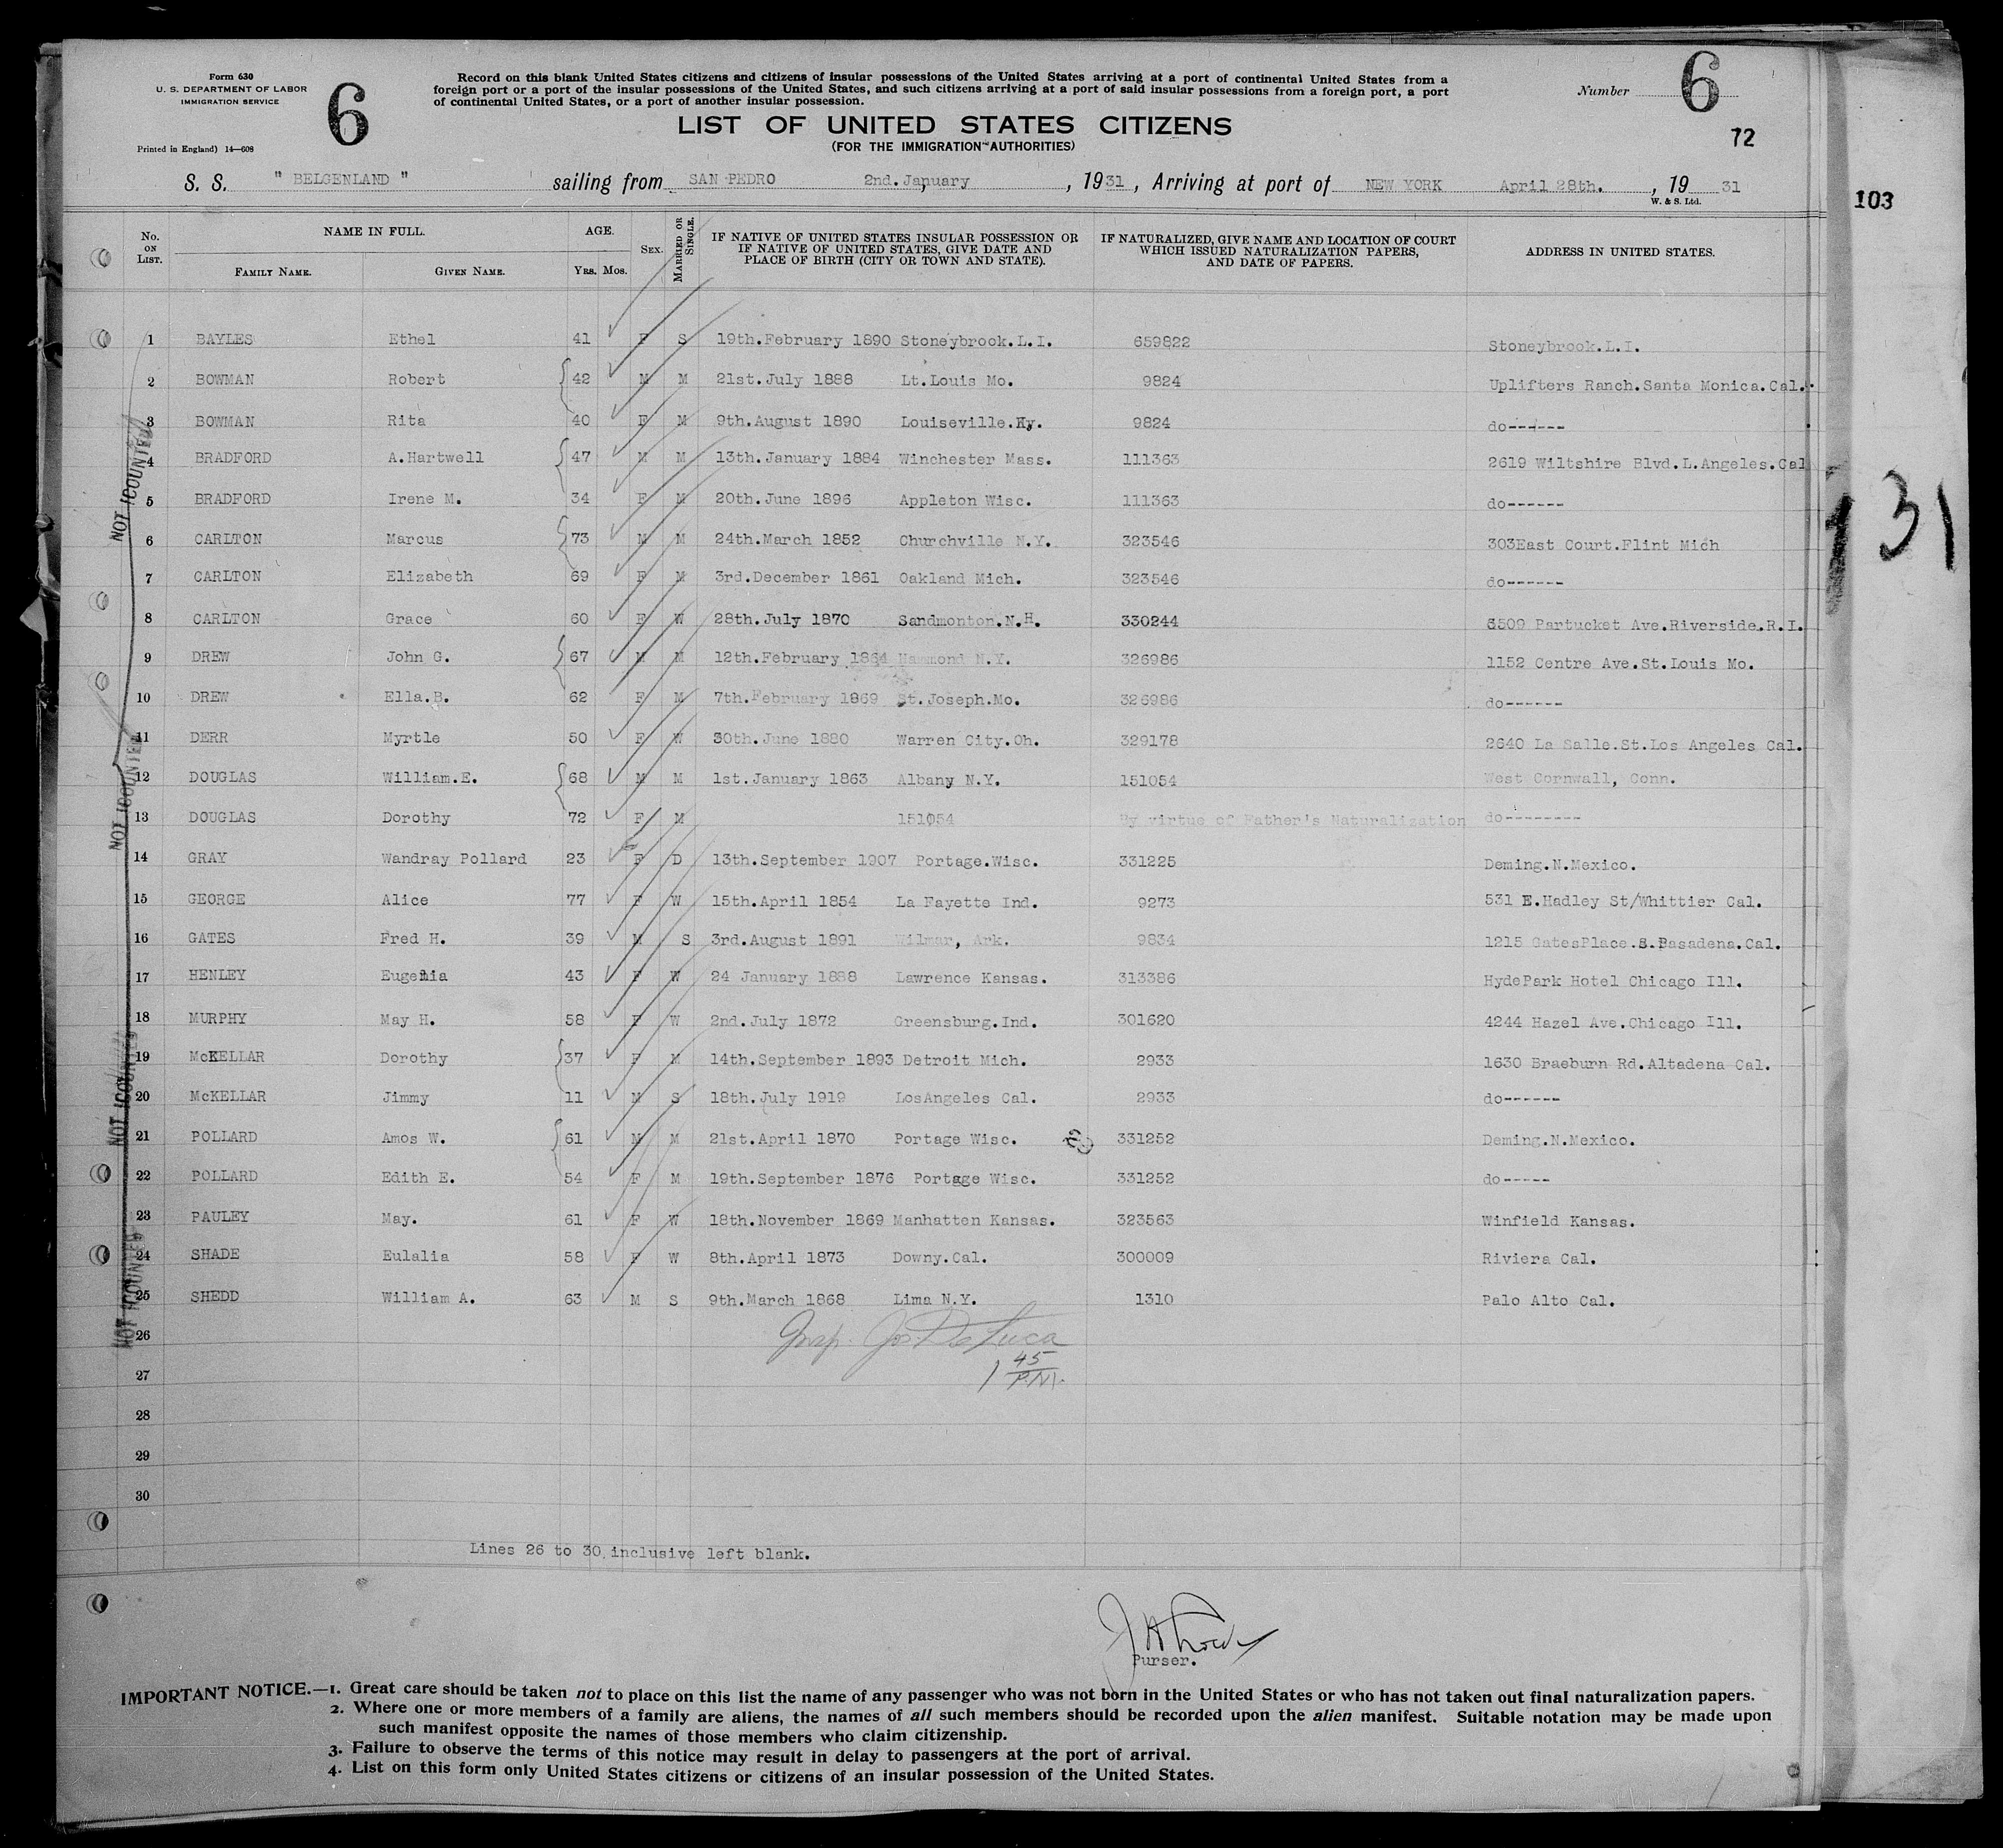 Form 630
U. S. DEPARTMENT OF LABOR
IMMIGRATION SERVICE
6
Printed in England) 14—608
Record on this blank United States citizens and citizens of insular possessions of the United States arriving at a port of continental United States from a
foreign port or a port of the insular possessions of the United States, and such citizens arriving at a port of said insular possessions from a foreign port, a port
of continental United States, or a port of another insular possession.
Number 6
72
LIST OF UNITED STATES CITIZENS
(FOR THE IMMIGRATION AUTHORITIES)
S. S. " BELGENLAND " sailing from SAN PEDRO 2nd. January , 1931 , Arriving at port of NEW YORK April 28th. , 19 31
W. & S. Ltd.
103
No. ON LIST. NAME IN FULL. FAMILY NAME. GIVEN NAME. AGE. Yrs. Mos. SEX. MARRIED OR SINGLE. IF NATIVE OF UNITED STATES INSULAR POSSESSION OR IF NATIVE OF UNITED STATES, GIVE DATE AND PLACE OF BIRTH (CITY OR TOWN AND STATE). IF NATURALIZED, GIVE NAME AND LOCATION OF COURT WHICH ISSUED NATURALIZATION PAPERS, AND DATE OF PAPERS. ADDRESS IN UNITED STATES.
1 BAYLES Ethel 41 F S 19th.February 1890 Stoneybrook.L.I. 659822 Stoneybrook.L.I.
2 BOWMAN Robert 42 M M 21st.July 1888 Lt.Louis Mo. 9824 Uplifters Ranch.Santa Monica.Cal.
3 BOWMAN Rita 40 F M 9th.August 1890 Louiseville.Ky. 9824 do------
4 BRADFORD A.Hartwell 47 M M 13th.January 1884 Winchester Mass. 111363 2619 Wiltshire Blvd.L.Angeles.Cal
5 BRADFORD Irene M. 34 F M 20th.June 1896 Appleton Wisc. 111363 do------
6 CARLTON Marcus 73 M M 24th.March 1852 Churchville N.Y. 323546 303East Court.Flint Mich
7 CARLTON Elizabeth 69 F M 3rd.December 1861 Oakland Mich. 323546 do------
8 CARLTON Grace 60 F W 28th.July 1870 Sandmonton.N.H. 330244 6509 Partucket Ave.Riverside.R.I.
9 DREW John G. 67 M M 12th.February 1864 Hammond N.Y. 326986 1152 Centre Ave.St.Louis Mo.
10 DREW Ella.B. 62 F M 7th.February 1869 St.Joseph.Mo. 326986 do------
11 DERR Myrtle 50 F W 30th.June 1880 Warren City.Oh. 329178 2640 La Salle.St.Los Angeles Cal.
12 DOUGLAS William.E. 68 M M 1st.January 1863 Albany N.Y. 151054 West Cornwall, Conn.
13 DOUGLAS Dorothy 72 F M 151054 By virtue of Father's Naturalization do--------
14 GRAY Wandray Pollard 23 F D 13th.September 1907 Portage.Wisc. 331225 Deming.N.Mexico.
15 GEORGE Alice 77 F W 15th.April 1854 La Fayette Ind. 9273 531 E.Hadley St/Whittier Cal.
16 GATES Fred H. 39 M S 3rd.August 1891 Wilmar, Ark. 9834 1215 GatesPlace.S.Pasadena.Cal.
17 HENLEY Eugenia 43 F W 24 January 1888 Lawrence Kansas. 313386 HydePark Hotel Chicago Ill.
18 MURPHY May H. 58 F W 2nd.July 1872 Greensburg.Ind. 301620 4244 Hazel Ave.Chicago Ill.
19 McKELLAR Dorothy 37 F M 14th.September 1893 Detroit Mich. 2933 1630 Braeburn Rd.Altadena Cal.
20 McKELLAR Jimmy 11 M S 18th.July 1919 LosAngeles Cal. 2933 do------
21 POLLARD Amos W. 61 M M 21st.April 1870 Portage Wisc. 331252 Deming.N.Mexico.
22 POLLARD Edith E. 54 F M 19th.September 1876 Portage Wisc. 331252 do-----
23 PAULEY May. 61 F W 18th.November 1869 Manhatten Kansas. 323563 Winfield Kansas.
24 SHADE Eulalia 58 F W 8th.April 1873 Downy.Cal. 300009 Riviera Cal.
25 SHEDD William A. 63 M S 9th.March 1868 Lima N.Y. 1310 Palo Alto Cal.
26
27
28
29
30
NOT ICOUNTED
NOT ICOUNTED
NOT ICOUNTED
NOT ICOUNTED
131
Insp. Jos. De Luca
1 45 P.M.
Lines 26 to 30 inclusive left blank.
Purser.
IMPORTANT NOTICE.—1. Great care should be taken not to place on this list the name of any passenger who was not born in the United States or who has not taken out final naturalization papers.
2. Where one or more members of a family are aliens, the names of all such members should be recorded upon the alien manifest. Suitable notation may be made upon
such manifest opposite the names of those members who claim citizenship.
3. Failure to observe the terms of this notice may result in delay to passengers at the port of arrival.
4. List on this form only United States citizens or citizens of an insular possession of the United States.